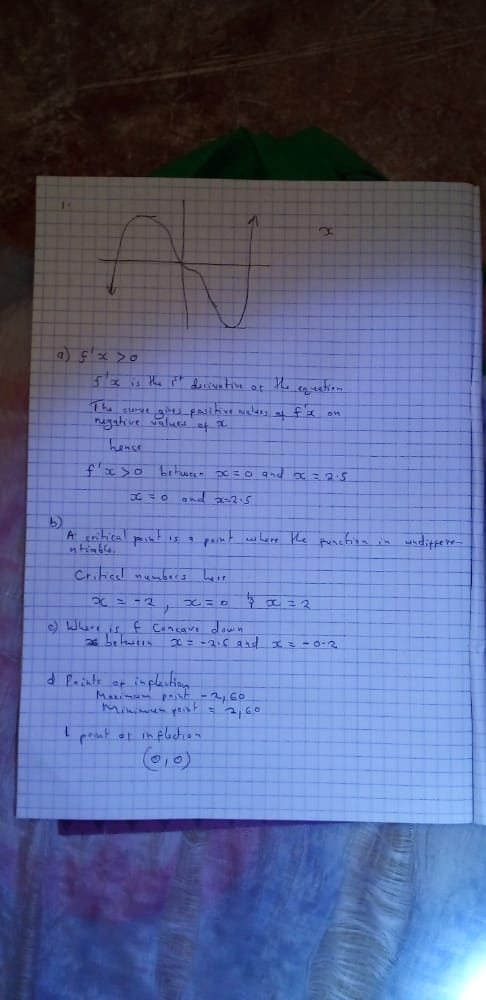 1.
x
a) f'x > 0
f'x is the 1st derivative of the equation
The curve gives positive values of f'x on
negative values of x
hence
f'x > 0 between x = 0 and x = 2.5
x = 0 and x = 2.5
b)
A critical point is a point where the function in undiffere-
ntiable.
Critical numbers here
x = -2, x = 0 & x = 2
c) Where is f concave down
between x = -2.5 and x = -0.2
d Points of inflection
Maximum point -2, 60
Minimum point = 2, 60
1 point of inflection
(0,0)